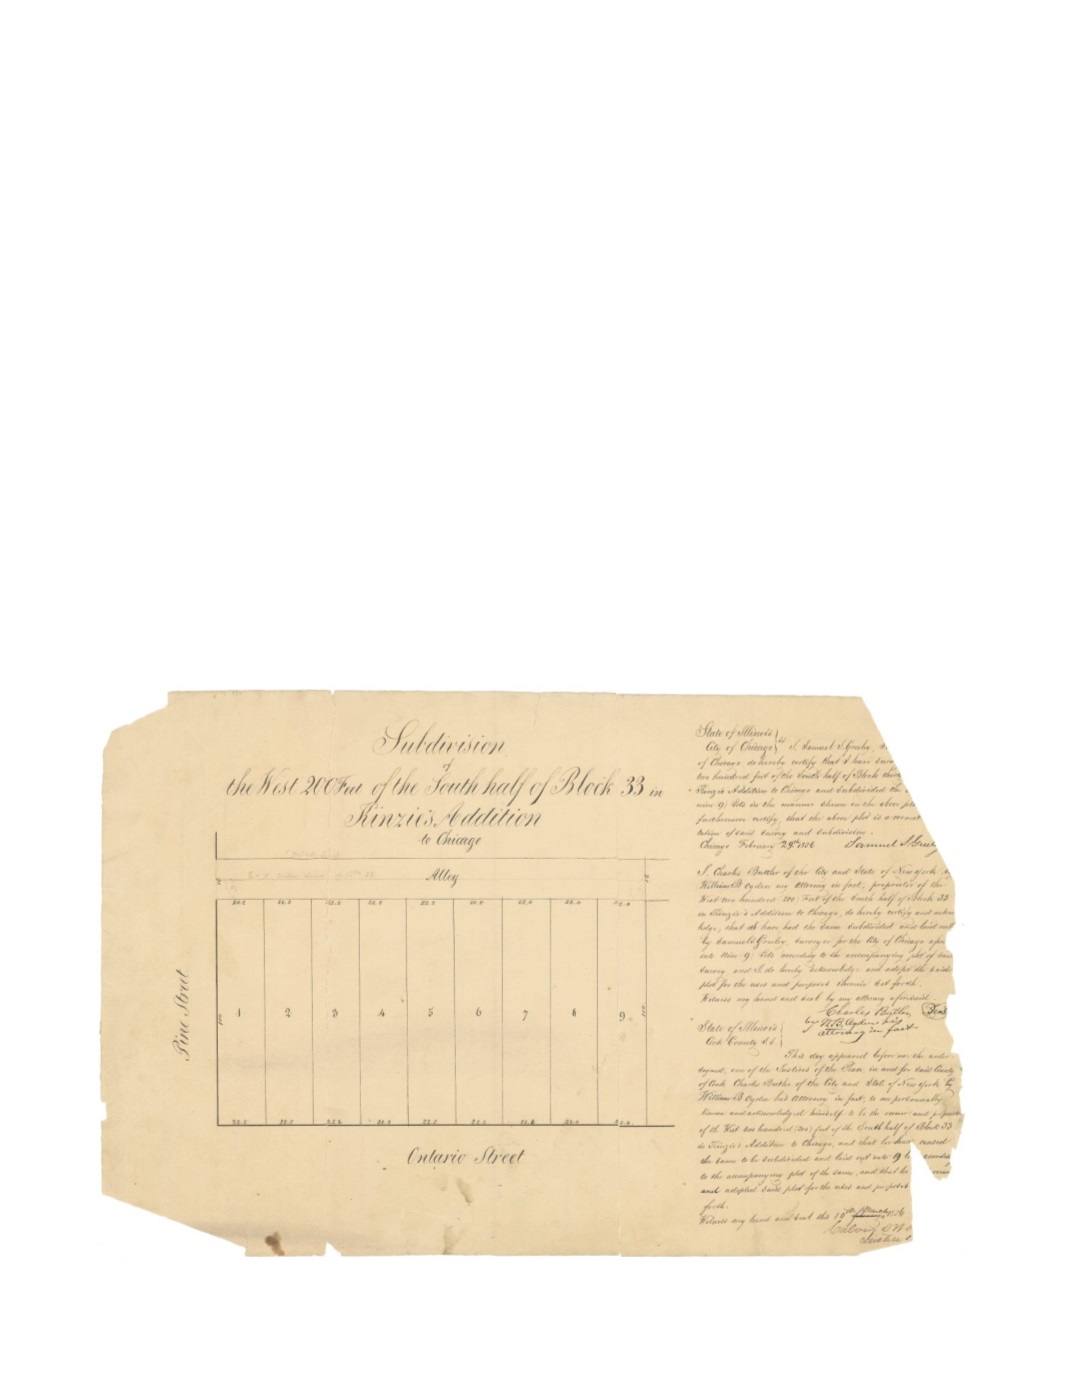 Subdivision
of
the West 200 Feet of the South half of Block 33 in
Kinzie's Addition
to Chicago
Alley
22.2 22.2 22.2 22.2 22.2 22.2
1 2 3 4 5 6 7 8 9
Pine Street
Ontario Street
State of Illinois
City of Chicago } ss I Samuel S. Greeley, S
of Chicago do hereby certify that I have surv
two hundred feet of the South half of Block thirty
Kinzie's Addition to Chicago and subdivided the
nine 9) lots in the manner shown on the above pl
furthermore certify, that the above plot is a correct
of said survey and subdivision.
Chicago February 29th 1856 Samuel S. Greely
I, Charles Butler of the City and State of New york by
William B Ogden my Attorney in fact, proprietor of the
West two hundred (200) Feet of the South half of Block 33
in Kinzie's Addition to Chicago, do hereby certify and acknow
ledge, that I have had the same subdivided and laid out
by Samuel S Greeley, Surveyor for the City of Chicago
into Nine 9) lots according to the accompanying plot of said
survey and I do hereby acknowledge and adopt the said
plot for the uses and purposes therein set forth.
Witness my hand and seal by my attorney aforesaid.
Charles Butler Seal
by W.B. Ogden his
attorney in fact
State of Illinois
Cook County S.S.
This day appeared before me the under
signed, one of the Justices of the Peace in and for said County
of Cook Charles Butler of the City and State of New york by
William B Ogden his Attorney in fact, to me personally
known and acknowledged himself to be the owner and
of the West two hundred (200) feet of the South half of Block 33
in Kinzie's Addition to Chicago, and that he had caused
the same to be subdivided and laid out into 9
to the accompanying plot of the same, and that he
and adopted said plot for the uses and purposes
forth.
Witness my hand and seal this 10th March 1856
Calvin